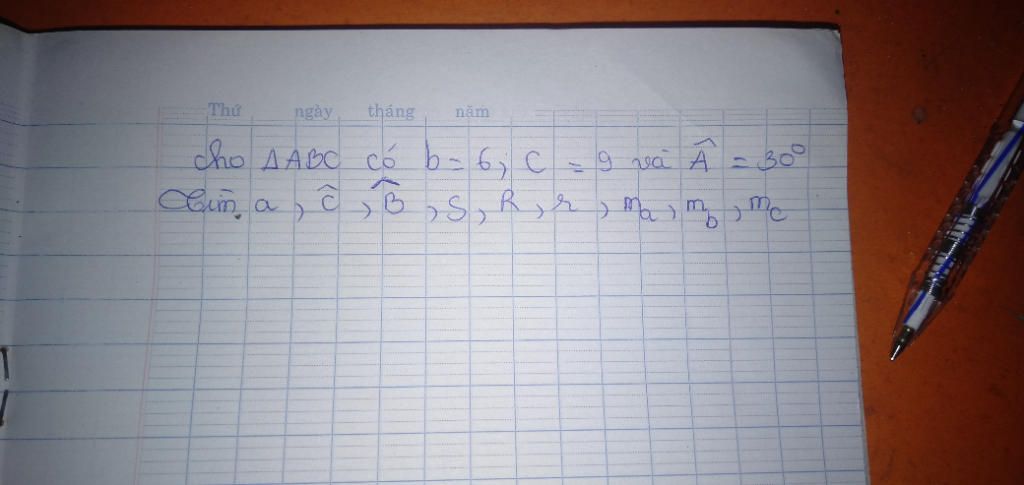 Thứ ngày tháng năm
cho ΔABC có b = 6; C = 9 và Â = 30⁰
Tìm a, Ĉ, B̂, S, R, r, mₐ, m_b, m_c